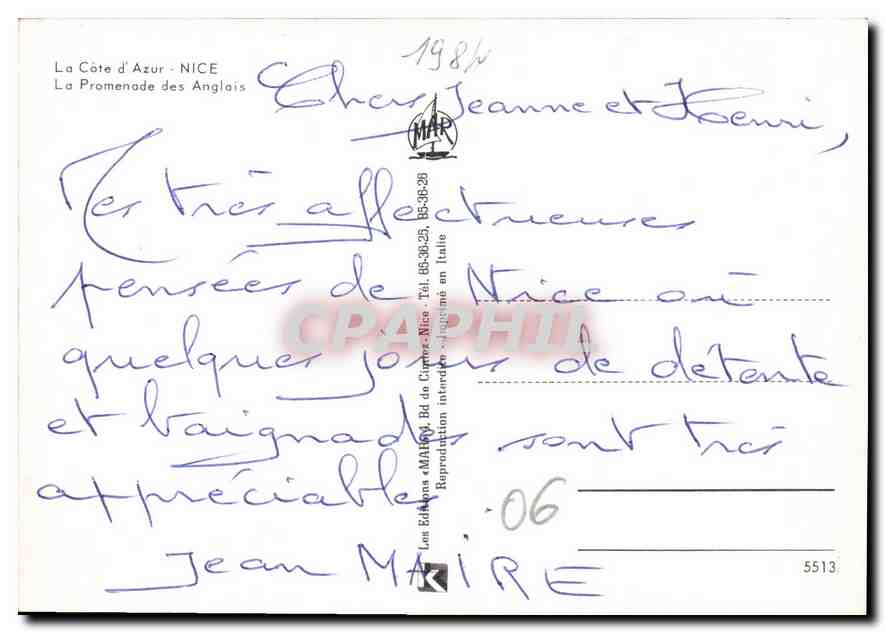 La Côte d'Azur - NICE
La Promenade des Anglais
1984
Chers Jeanne et Henri,
MAR
Mes très affectueuses
pensées de Nice où
quelques jours de détente
et baignades sont très
appréciables
Jean MAIRE
Les Editions «MAR» Bd de Cimiez - Nice - Tél. 85-36-25, 85-36-26
Reproduction interdite - Imprimé en Italie
CPAPHIL
06
K
5513